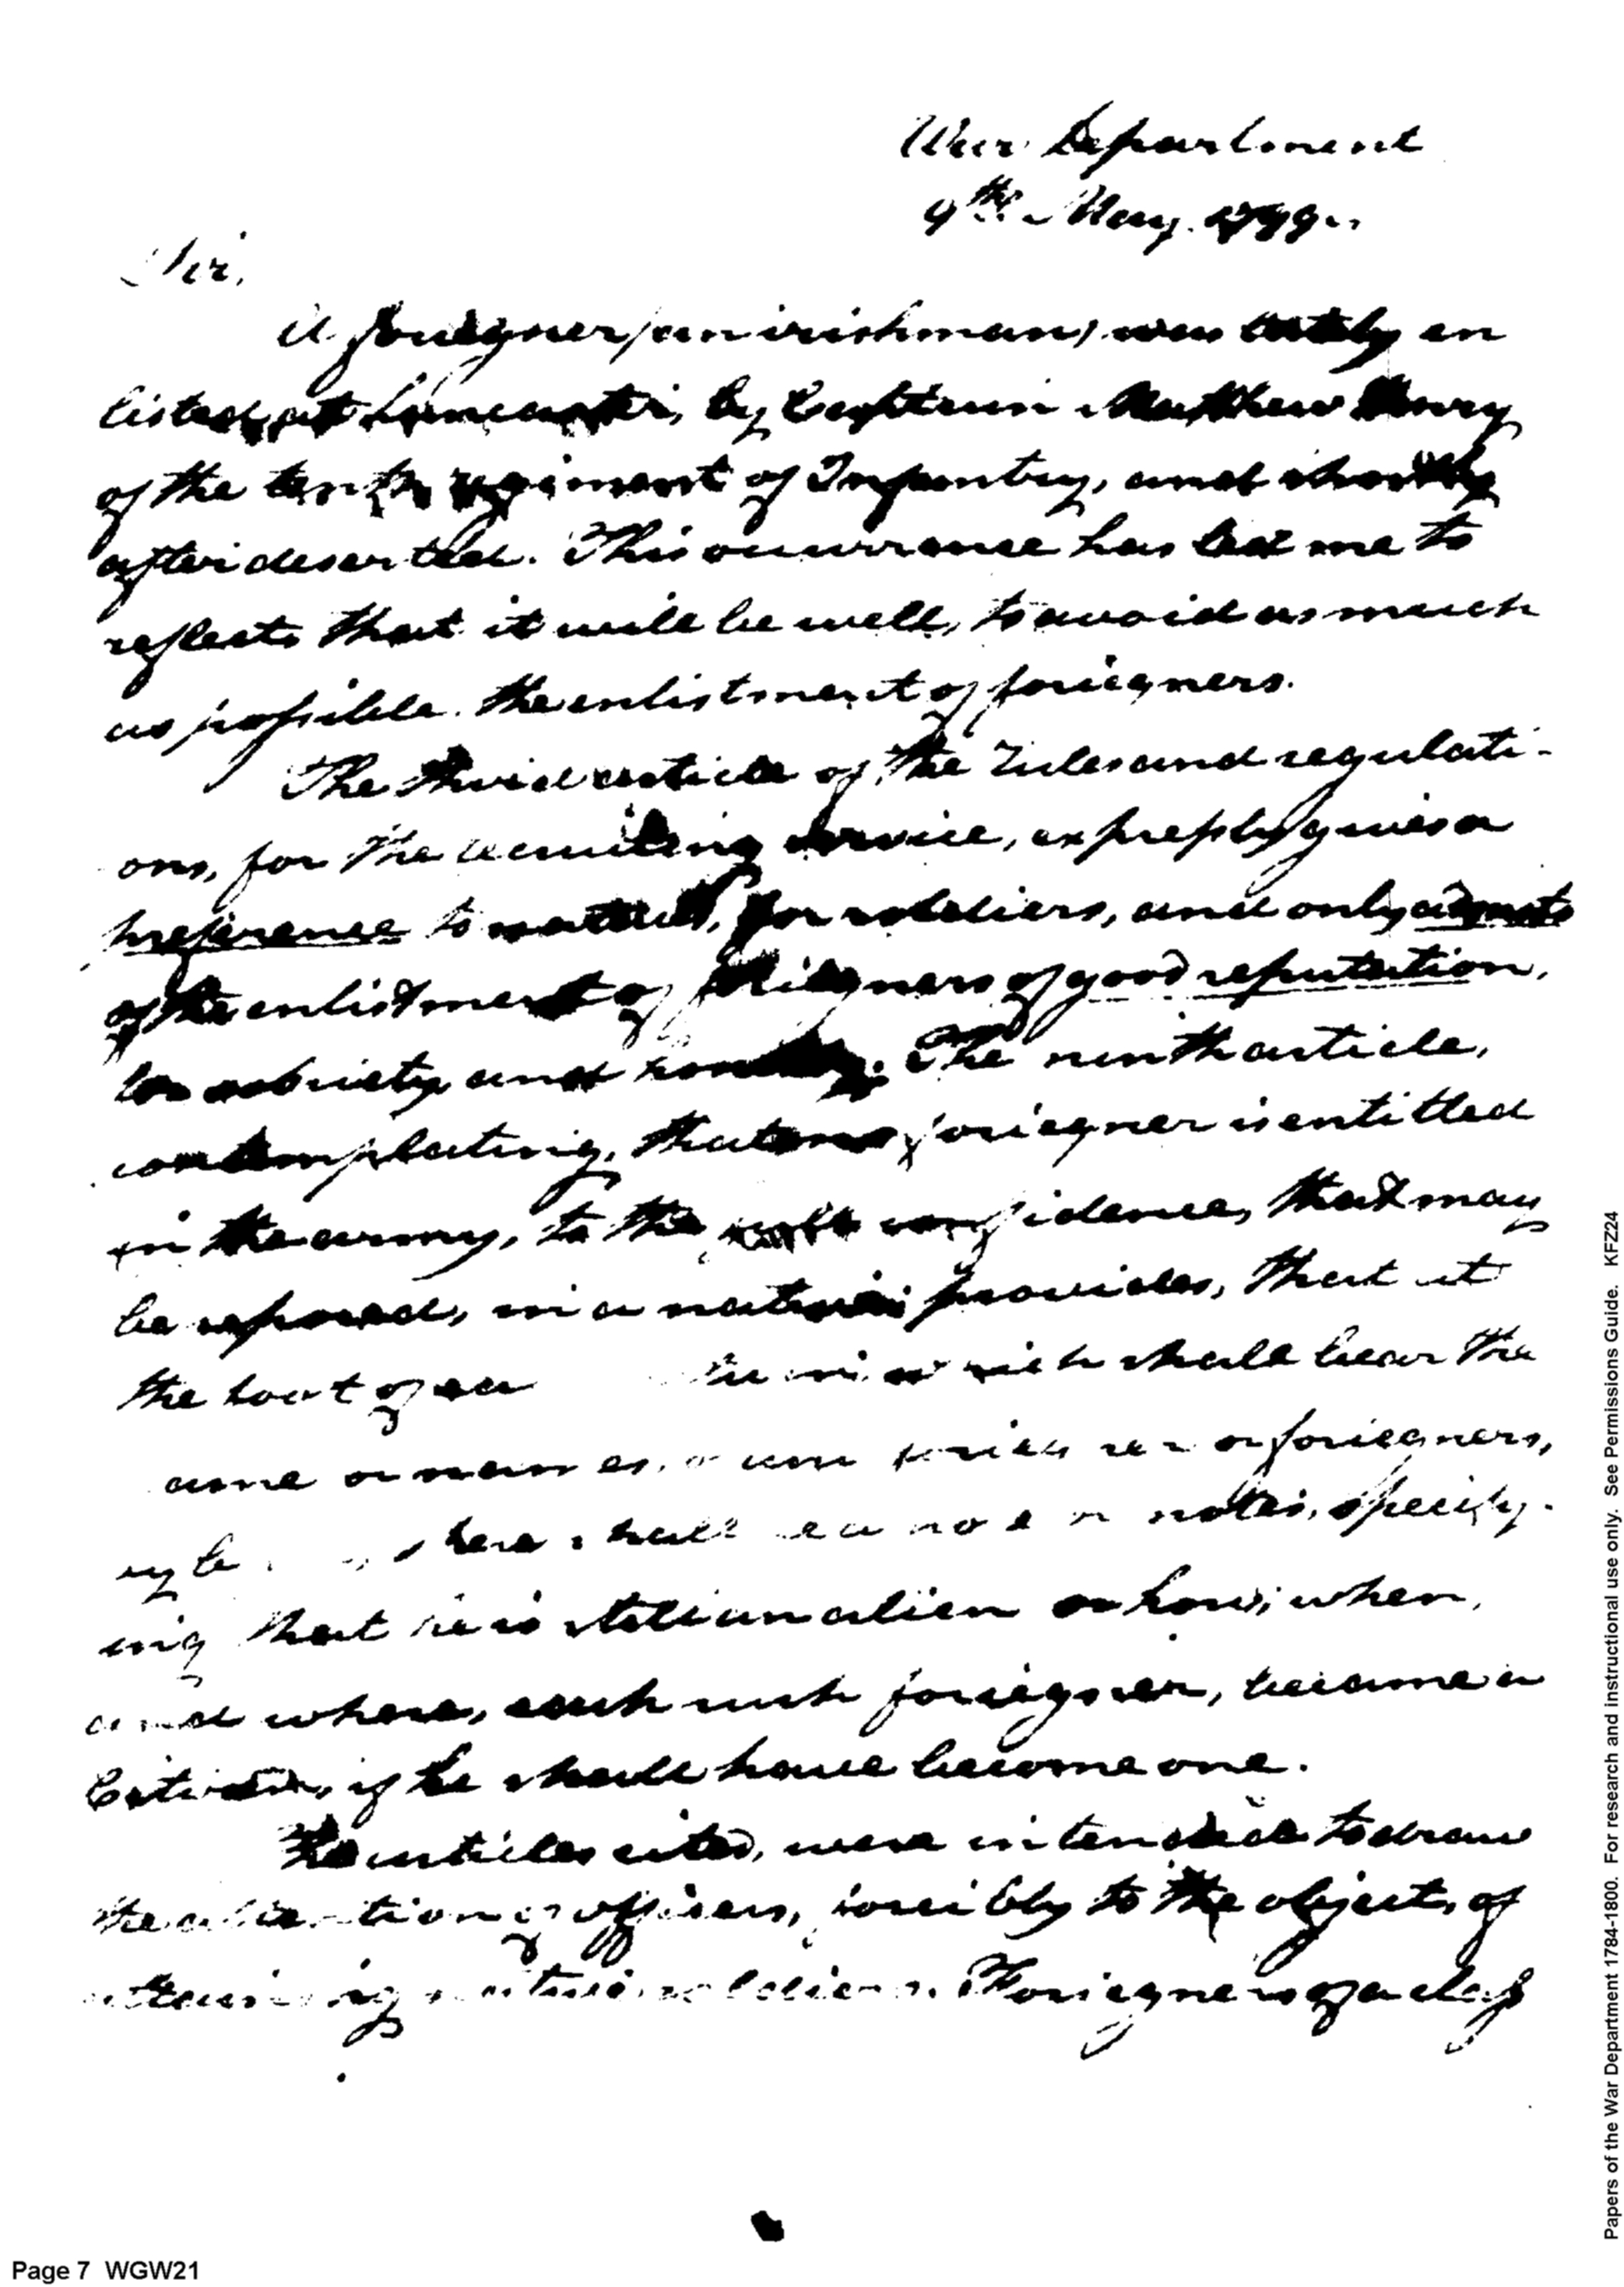 War Department
9th May. 1799.
Sir,
A foriegner (an irishman) was lately en
listed, at Lancaster, by Captain Matthew Henry
of the tenth regiment of Infantry, and shortly
after deserted. This occurrence has led me to
reflect that it will be well, to avoid as much
as possible the enlistment of foriegners.
The third article of the Rules and regulati-
ons, for the recruiting service, expressly gives a
preference to natives, for soldiers, and only admits
of the enlistment of foriegners of good reputation,
for sobriety and honesty. The ninth article,
contemplating, that no foriegner is entitled
in the army, to the confidence, that may
be reposed, in a native; provides, that at
the foot of ea which shall bear the
ame or names, of any foriegner or foriegners,
there shall be a note or notes, specify-
ing that he is still an alien or how, when,
and where, each such foriegner, became a
Citizen, if he shall have become one.
The articles cited, were intended to draw
the attention of officers, forcibly to the object, of
obtaining native soldiers. Foriegners of a class
Page 7 WGW21
Papers of the War Department 1784-1800. For research and instructional use only. See Permissions Guide. KFZ24